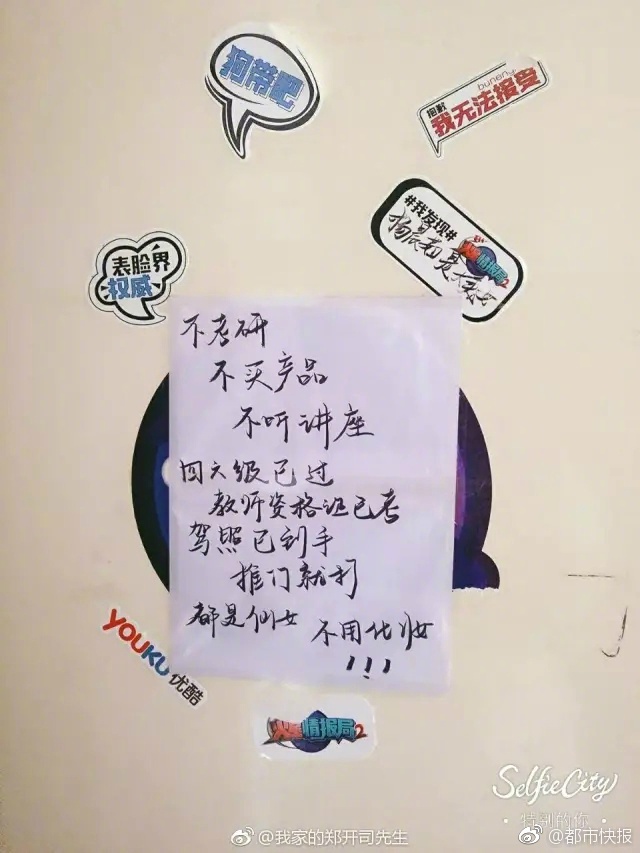 狗带吧
bunengy
抱歉
我无法接受
#我发现#
火星情报局2
表脸界
权威
不考研
不买产品
不听讲座
四六级已过
教师资格证已考
驾照已到手
推门就利
都是仙女 不用化妆
!!!
YOUKU优酷
火星情报局2
SelfieCity
·特别的你·
@我家的郑开司先生
@都市快报